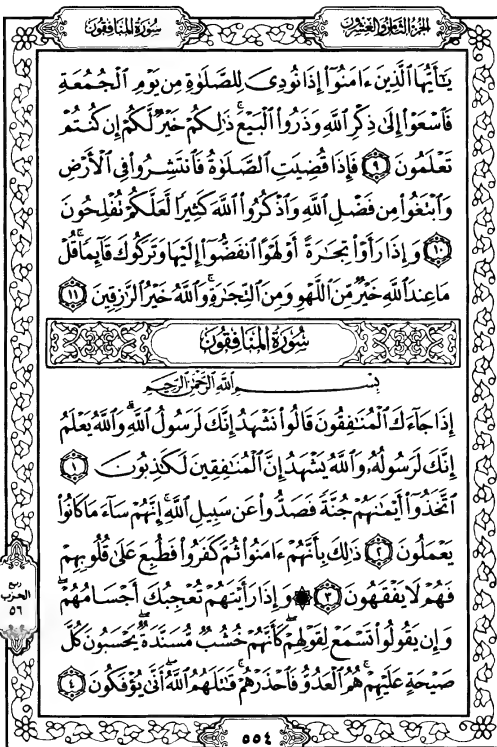 سُورَةُ المُنَافِقُونَ
الجُزْءُ الثَّامِنُ وَالعِشْرُونَ
يَـٰٓأَيُّهَا ٱلَّذِينَ ءَامَنُوٓا۟ إِذَا نُودِىَ لِلصَّلَوٰةِ مِن يَوْمِ ٱلْجُمُعَةِ
فَٱسْعَوْا۟ إِلَىٰ ذِكْرِ ٱللَّهِ وَذَرُوا۟ ٱلْبَيْعَ ۚ ذَٰلِكُمْ خَيْرٌ لَّكُمْ إِن كُنتُمْ
تَعْلَمُونَ ٩ فَإِذَا قُضِيَتِ ٱلصَّلَوٰةُ فَٱنتَشِرُوا۟ فِى ٱلْأَرْضِ
وَٱبْتَغُوا۟ مِن فَضْلِ ٱللَّهِ وَٱذْكُرُوا۟ ٱللَّهَ كَثِيرًا لَّعَلَّكُمْ تُفْلِحُونَ
١٠ وَإِذَا رَأَوْا۟ تِجَـٰرَةً أَوْ لَهْوًا ٱنفَضُّوٓا۟ إِلَيْهَا وَتَرَكُوكَ قَآئِمًا ۚ قُلْ
مَا عِندَ ٱللَّهِ خَيْرٌ مِّنَ ٱللَّهْوِ وَمِنَ ٱلتِّجَـٰرَةِ ۚ وَٱللَّهُ خَيْرُ ٱلرَّٰزِقِينَ ١١
سُورَةُ المُنَافِقُونَ
بِسْمِ ٱللَّهِ ٱلرَّحْمَـٰنِ ٱلرَّحِيمِ
إِذَا جَآءَكَ ٱلْمُنَـٰفِقُونَ قَالُوا۟ نَشْهَدُ إِنَّكَ لَرَسُولُ ٱللَّهِ ۗ وَٱللَّهُ يَعْلَمُ
إِنَّكَ لَرَسُولُهُۥ وَٱللَّهُ يَشْهَدُ إِنَّ ٱلْمُنَـٰفِقِينَ لَكَـٰذِبُونَ ١
ٱتَّخَذُوٓا۟ أَيْمَـٰنَهُمْ جُنَّةً فَصَدُّوا۟ عَن سَبِيلِ ٱللَّهِ ۚ إِنَّهُمْ سَآءَ مَا كَانُوا۟
يَعْمَلُونَ ٢ ذَٰلِكَ بِأَنَّهُمْ ءَامَنُوا۟ ثُمَّ كَفَرُوا۟ فَطُبِعَ عَلَىٰ قُلُوبِهِمْ
فَهُمْ لَا يَفْقَهُونَ ٣ ۞ وَإِذَا رَأَيْتَهُمْ تُعْجِبُكَ أَجْسَامُهُمْ ۖ
وَإِن يَقُولُوا۟ تَسْمَعْ لِقَوْلِهِمْ ۖ كَأَنَّهُمْ خُشُبٌ مُّسَنَّدَةٌ ۖ يَحْسَبُونَ كُلَّ
صَيْحَةٍ عَلَيْهِمْ ۚ هُمُ ٱلْعَدُوُّ فَٱحْذَرْهُمْ ۚ قَـٰتَلَهُمُ ٱللَّهُ ۖ أَنَّىٰ يُؤْفَكُونَ ٤
ربع
الحزب
٥٦
٥٥٤